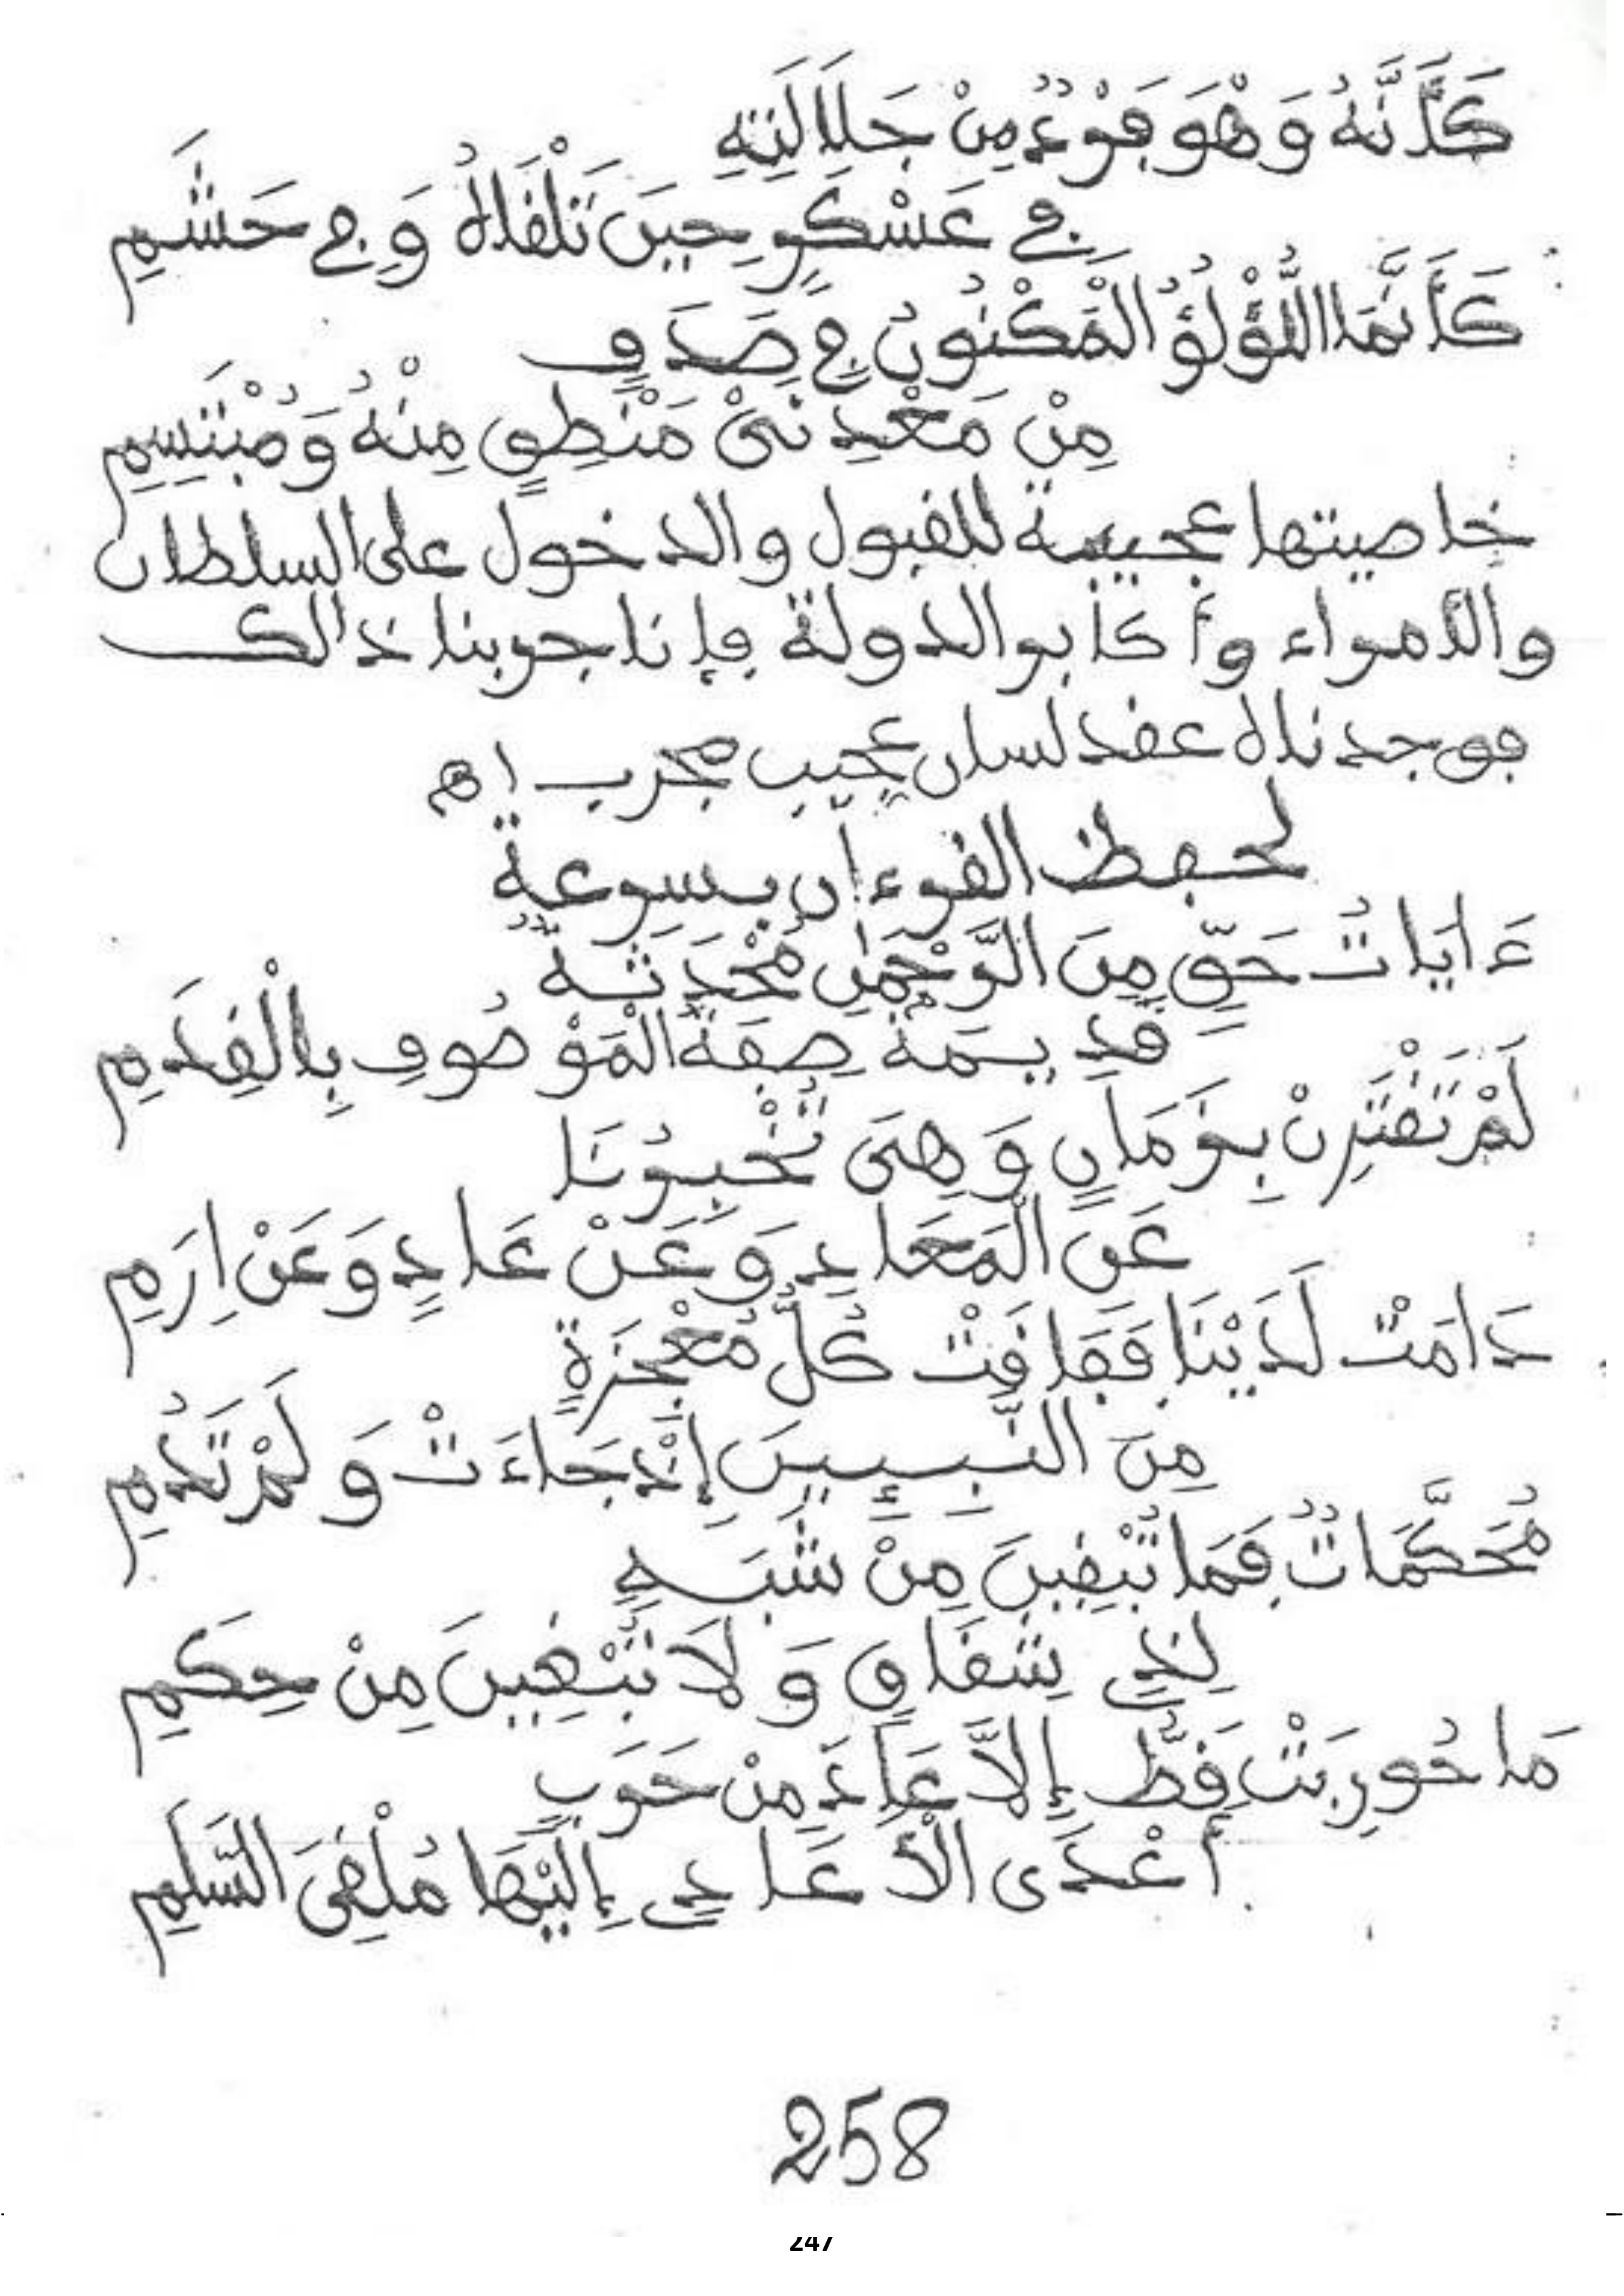 كَأَنَّهُ وَهْوَ فَرْدٌ مِنْ جَلَالَتِهِ
في عَسْكَرٍ حِينَ تَلْقَاهُ وَفِي حَشَمِ
كَأَنَّمَا اللُّؤْلُؤُ الْمَكْنُونُ فِي صَدَفٍ
مِنْ مَعْدِنَيْ مَنْطِقٍ مِنْهُ وَمُبْتَسِمِ
خاصيتها عجيبة للقبول والدخول على السلطان
والأمراء وأكابر الدولة فإنا جربنا ذالك
فوجدناه عقد لسان عجيب مجرب اهـ
لحفظ القرءان بسرعة
ءَايَاتُ حَقٍّ مِنَ الرَّحْمَٰنِ مُحْدَثَةٌ
قَدِيمَةٌ صِفَةُ الْمَوْصُوفِ بِالْقِدَمِ
لَمْ تَقْتَرِنْ بِزَمَانٍ وَهِيَ تُخْبِرُنَا
عَنِ الْمَعَادِ وَعَنْ عَادٍ وَعَنْ اِرَمِ
دَامَتْ لَدَيْنَا فَفَاقَتْ كُلَّ مُعْجِزَةٍ
مِنَ النَّبِيئِينَ إِذْ جَاءَتْ وَلَمْ تَدُمِ
مُحَكَّمَاتٌ فَمَا تُبْقِينَ مِنْ شُبَهٍ
لِذِي شِقَاقٍ وَلَا تَبْغِينَ مِنْ حِكَمِ
مَا حُورِبَتْ قَطُّ إِلَّا عَادَ مِنْ حَرَبٍ
أَعْدَى الْأَعَادِي إِلَيْهَا مُلْقِيَ السَّلَمِ
258
247